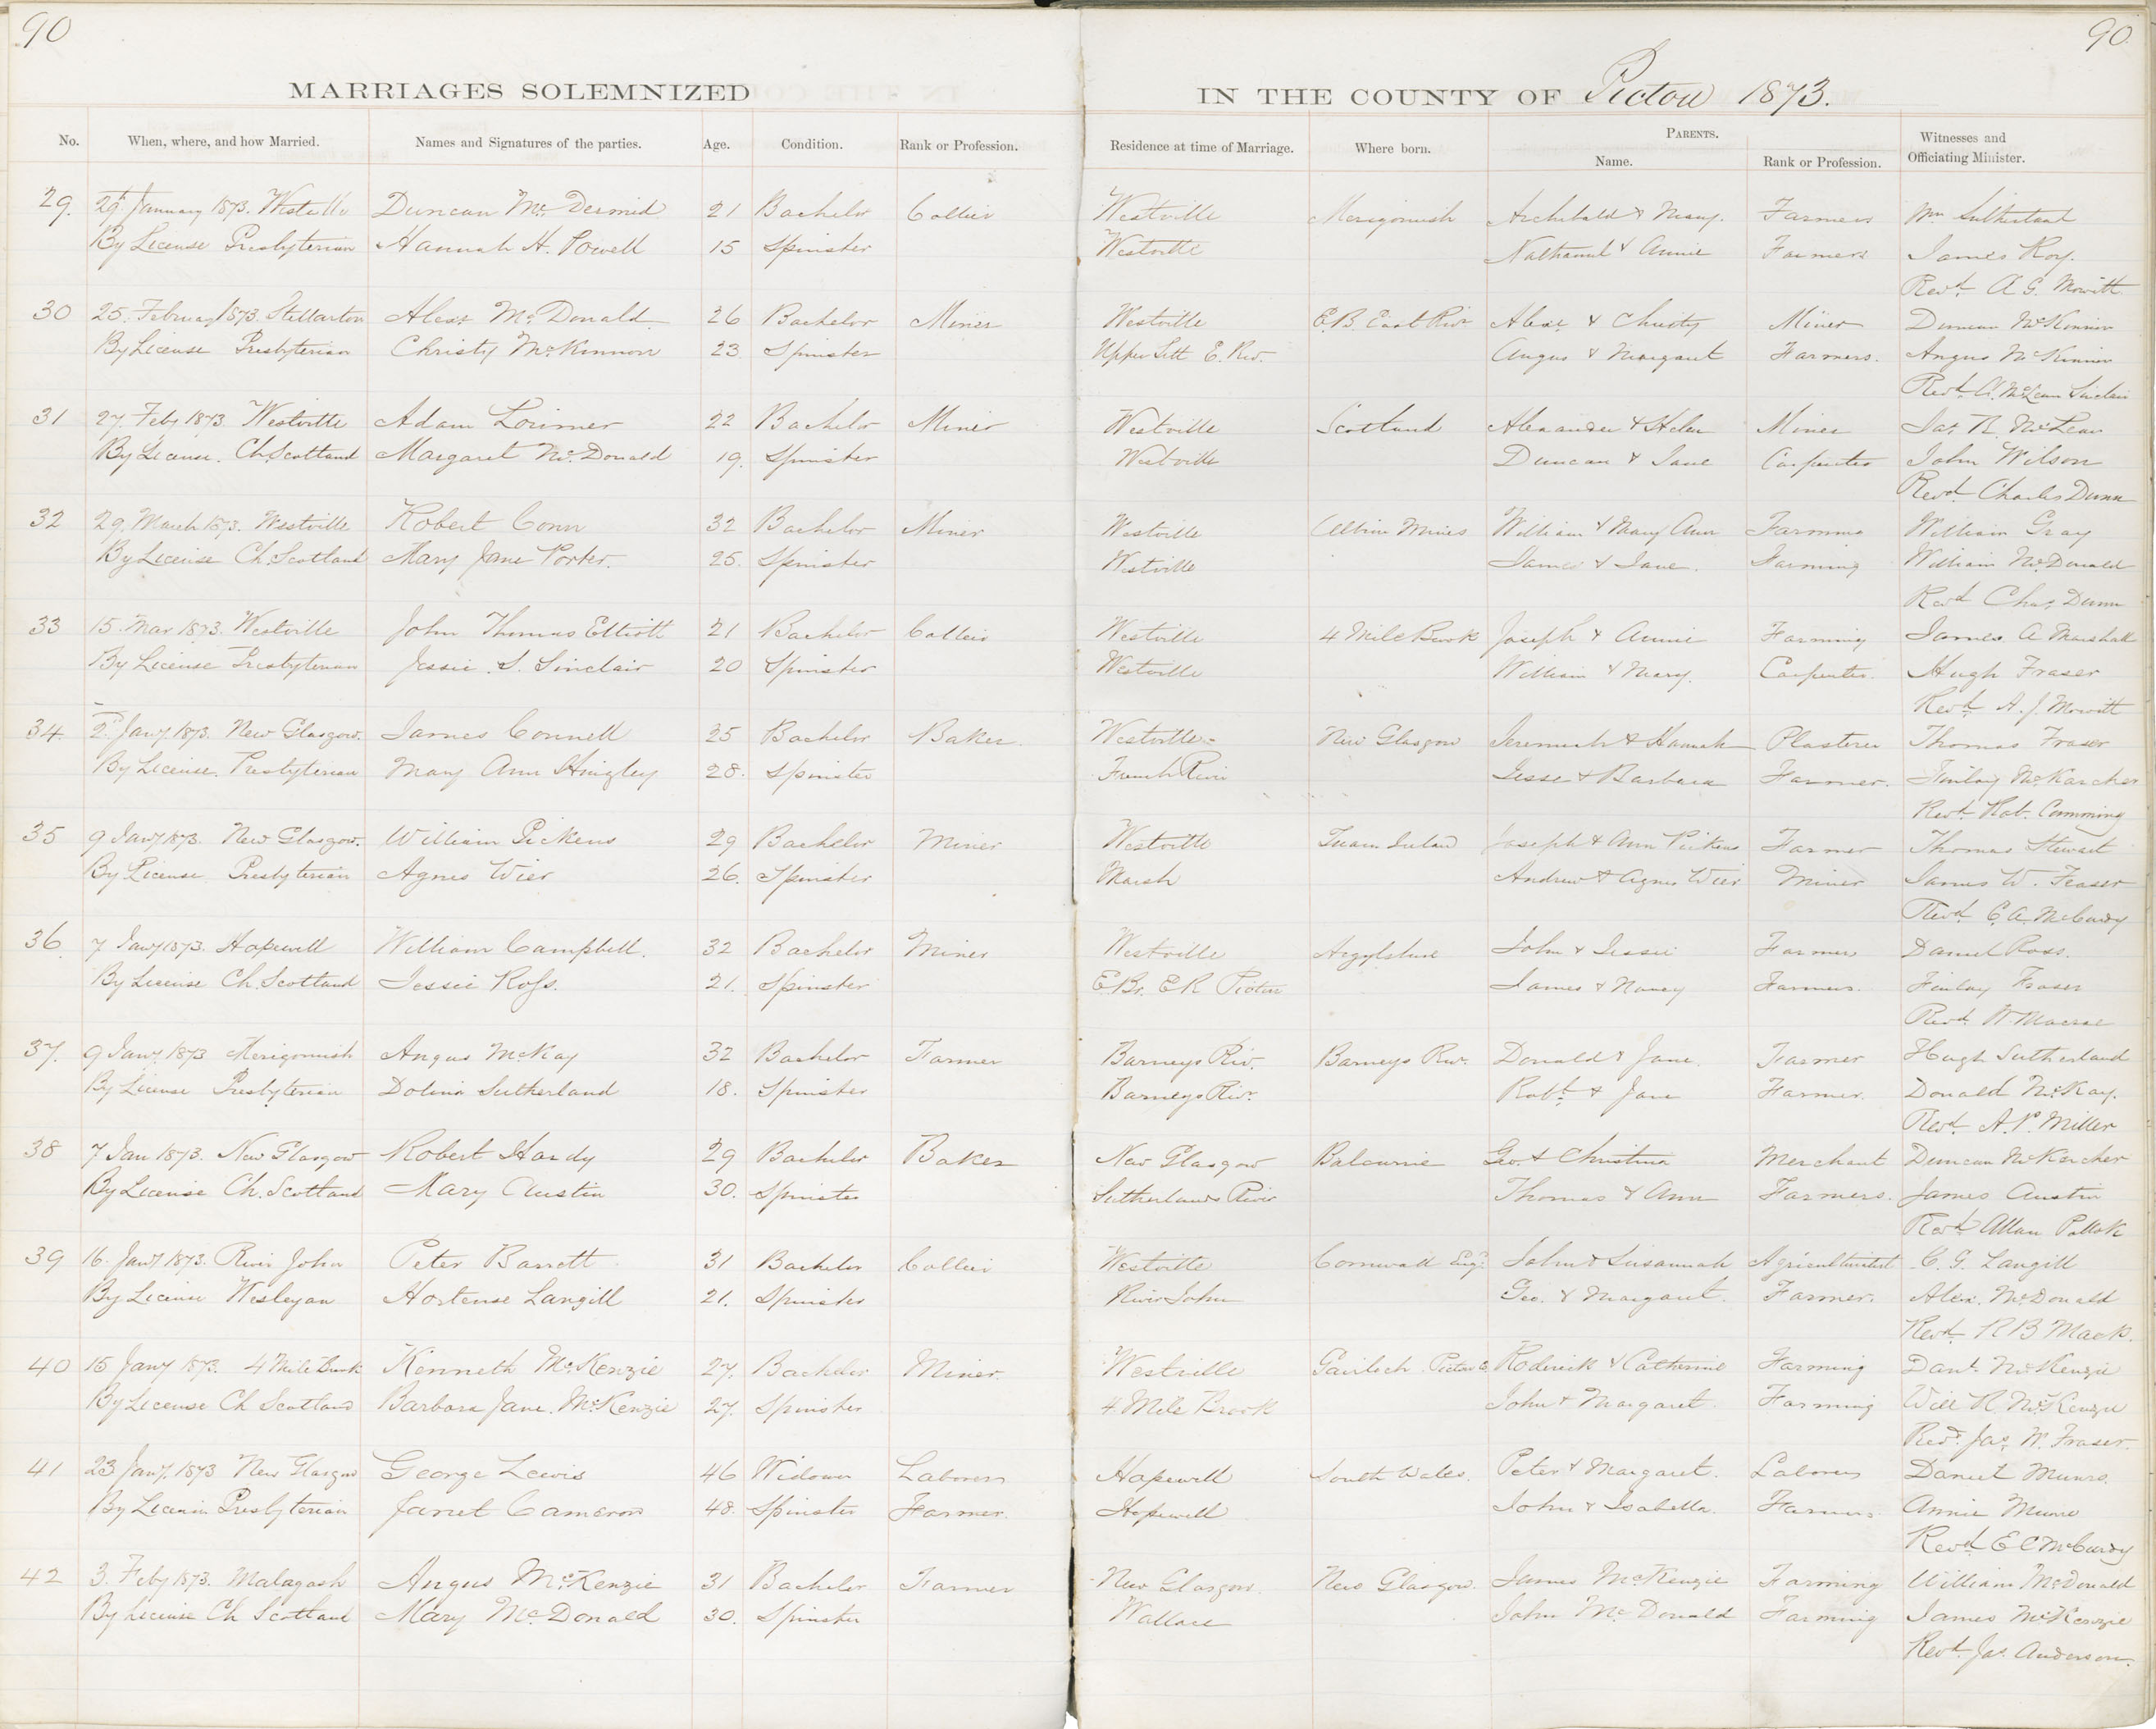 90
90
MARRIAGES SOLEMNIZED IN THE COUNTY OF Pictou 1873.
No. When, where, and how Married. Names and Signatures of the parties. Age. Condition. Rank or Profession. Residence at time of Marriage. Where born. PARENTS. Name. Rank or Profession. Witnesses and Officiating Minister.
29. 29th January 1873. Westville Duncan Mc Dermid 21 Bachelor Collier Westville Merigomish Archibald & Mary. Farmers Wm Sutherland
By License Presbyterian Hannah H. Powell 15 Spinster Westville Nathaniel & Annie Farmers James Roy.
Revd. A. G. Mowitt
30 25. February 1873. Stellarton Alexr McDonald 26 Bachelor Miner Westville E.B. East Rivr Alexr & Christy Miner Duncan McKinnon
By License Presbyterian Christy McKinnon 23 Spinster Upper Sett E. Riv. Angus & Margaret Farmers. Angus McKinnon
Revd. A. McLean Sinclair
31 27 Feby 1873. Westville Adam Lorimer 22 Bachelor Miner Westville Scotland Alexander & Helen Miner Jas. R. McLean
By License. Ch. Scotland Margaret McDonald 19. Spinster Westville Duncan & Jane Carpenter John Wilson
Revd Charles Dunn
32 29. March 1873. Westville Robert Conn 32 Bachelor Miner Westville Albion Mines William & Mary Ann Farming William Gray
By License Ch. Scotland Mary Jane Porter. 25. Spinster Westville James & Jane. Farming William McDonald
Revd Chas. Dunn
33 15. Mar 1873. Westville John Thomas Elliott 21 Bachelor Collier Westville 4 Mile Brook Joseph & Annie Farming James A Marshall
By License Presbyterian Jessie S. Sinclair 20 Spinster Westville William & Mary. Carpenter. Hugh Fraser
Revd. A. J. Mowitt
34. 2d Jany 1873. New Glasgow. James Connell 25 Bachelor Baker Westville New Glasgow Jeremiah & Hannah Plasterer Thomas Fraser
By License. Presbyterian Mary Ann Hingley 28. Spinster French River Jesse & Barbara Farmer. Finlay McKaracher
Revd. Rob. Cumming
35 9 Jany 1873. New Glasgow. William Pickens 29 Bachelor Miner Westville Tuam Ireland Joseph & Ann Pickens Farmer Thomas Stewart
By License Presbyterian Agnes Wier 26. Spinster Marsh Andrew & Agnes Wier Miner James W. Fraser
Revd McCurdy
36. 7 Jany 1873. Hopewell William Campbell. 32 Bachelor Miner Westville Argyleshire John & Jessie Farmer Daniel Ross.
By License Ch. Scotland Jessie Ross. 21. Spinster E Br. E R Pictou James & Nancy Farmers. Finlay Fraser
Revd. Macrae
37. 9 Jany 1873 Merigomish Angus McKay 32 Bachelor Farmer Barneys Riv. Barneys Rivr. Donald & Jane. Farmer Hugh Sutherland
By License Presbyterian Dolina Sutherland 18. Spinster Barneys Rivr. Robt. & Jane Farmer. Donald McKay.
Revd. A. P. Miller
38 7 Jan 1873. New Glasgow Robert Hardy 29 Bachelor Baker New Glasgow Balcurvie Geo. & Christina Merchant Duncan McKercher
By License Ch. Scotland Mary Austin 30. Spinster Sutherlands River Thomas & Ann Farmers. James Austin
Revd Allan Pollok
39 16. Jany 1873. River John Peter Barrett 31 Bachelor Collier Westville Cornwall Engd. John & Susannah Agriculturist C. G. Langill
By License Wesleyan Hortense Langill 21. Spinster River John Geo. & Margaret. Farmer. Alex. McDonald
Revd. R B Mack.
40 15 Jany 1873. 4 Mile Brook Kenneth McKenzie 27. Bachelor Miner. Westville Gairloch Pictou Co Roderick & Catherine Farming Danl. McKenzie
By License Ch Scotland Barbara Jane McKenzie 27. Spinster 4 Mile Brook John & Margaret. Farming Will R. McKenzie
Revd. Jas. W. Fraser.
41 23 Jany. 1873 New Glasgow George Lewis 46 Widower Laborer Hopewell South Wales. Peter & Margaret. Laborer Daniel Munro.
By License Presbyterian Janet Cameron 48. Spinster Farmer. Hopewell John & Isabella. Farmers Annie Munro
Revd McCurdy
42 3. Feby 1873. Malagash Angus McKenzie 31 Bachelor Farmer New Glasgow. New Glasgow. James McKenzie Farming William McDonald
By License Ch Scotland Mary McDonald 30. Spinster Wallace John McDonald Farming James McKenzie
Revd. Jas. Anderson.